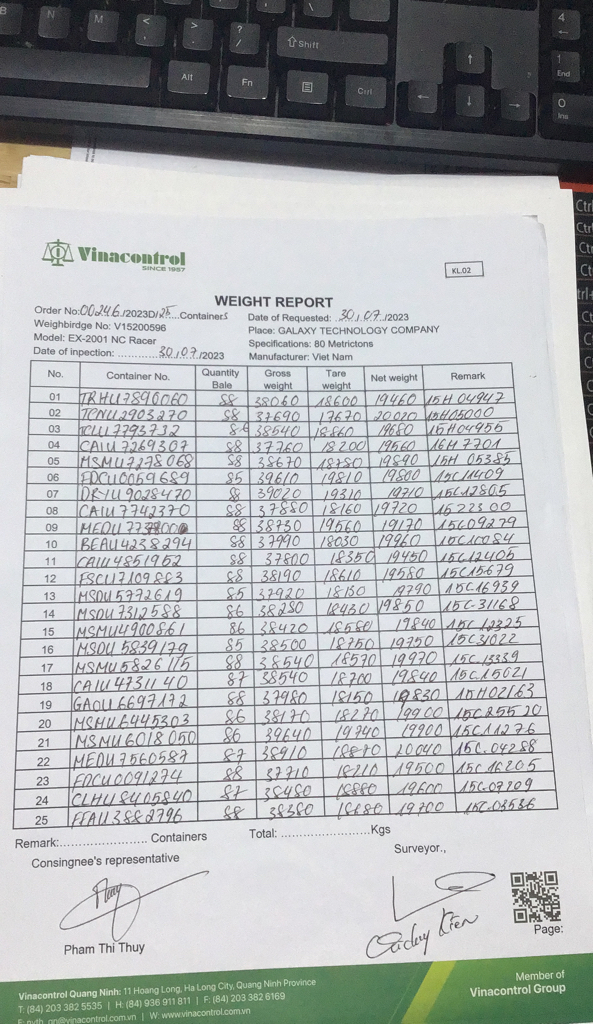 B N M < , > . ? / ⇧Shift 4 ←
Alt Fn Ctrl ↑ 1 End
← ↓ → 0 Ins
Vinacontrol
SINCE 1957
KL.02
WEIGHT REPORT
Order No:00246/2023D/25...Containers Date of Requested: 30/07/2023
Weighbirdge No: V15200596 Place: GALAXY TECHNOLOGY COMPANY
Model: EX-2001 NC Racer Specifications: 80 Metrictons
Date of inpection: ............30/07/2023 Manufacturer: Viet Nam
No. Container No. Quantity Bale Gross weight Tare weight Net weight Remark
01 TRHU7896060 88 38060 18600 19460 15H04947
02 TCNU2903270 88 37690 17670 20020 15H05000
03 TCLU7793732 86 38540 18860 19680 15H04955
04 CAIU7269307 88 37760 18200 19560 16H7701
05 MSMU7278068 88 38670 18780 19890 15H 05385
06 FDCU0059689 85 39610 19810 19800 15C11409
07 DRYU9028470 88 39020 19310 19710 15C12805
08 CAIU7742370 88 37880 18160 19720
09 88 38730 19560 19170 15C09279
10 BEAU4238294 88 37990 18030 19960 15C10084
11 CAIU4851952 88 37800 18350 19450 15C12405
12 FSCU7109883 88 38190 18610 19580 15C15679
13 MSDU5772619 85 37920 18130 19790 15C16939
14 MSDU7312588 86 38280 18430 19850 15C-31168
15 MSMU4900861 86 38420 18580 19840 15C12325
16 MSDU5839179 85 38500 18750 19750 15C31022
17 MSMU5826115 88 38540 18570 19970 15C13339
18 CAIU4731140 87 38540 18700 19840 15C15021
19 GAOU6697172 88 37980 18150 19830 15H02163
20 MSMU6445303 86 38170 18270 19900 15C25520
21 MSMU6018050 86 39640 19740 19900 15C11276
22 MEDU7560587 87 38910 18870 20040 15C-04288
23 FDCU0091274 88 37710 18210 19500 15C16205
24 CLHU8405840 87 38480 18880 19600 15C-07209
25 FFAU3882796 88 38380 18680 19700 15C-03536
Remark:........................ Containers Total: .........................Kgs
Consingnee's representative Surveyor.,
Pham Thi Thuy
Page:
Vinacontrol Quang Ninh: 11 Hoang Long, Ha Long City, Quang Ninh Province
T: (84) 203 382 5535 | H: (84) 936 911 811 | F: (84) 203 382 6169
qn@vinacontrol.com.vn | W: www.vinacontrol.com.vn
Member of
Vinacontrol Group